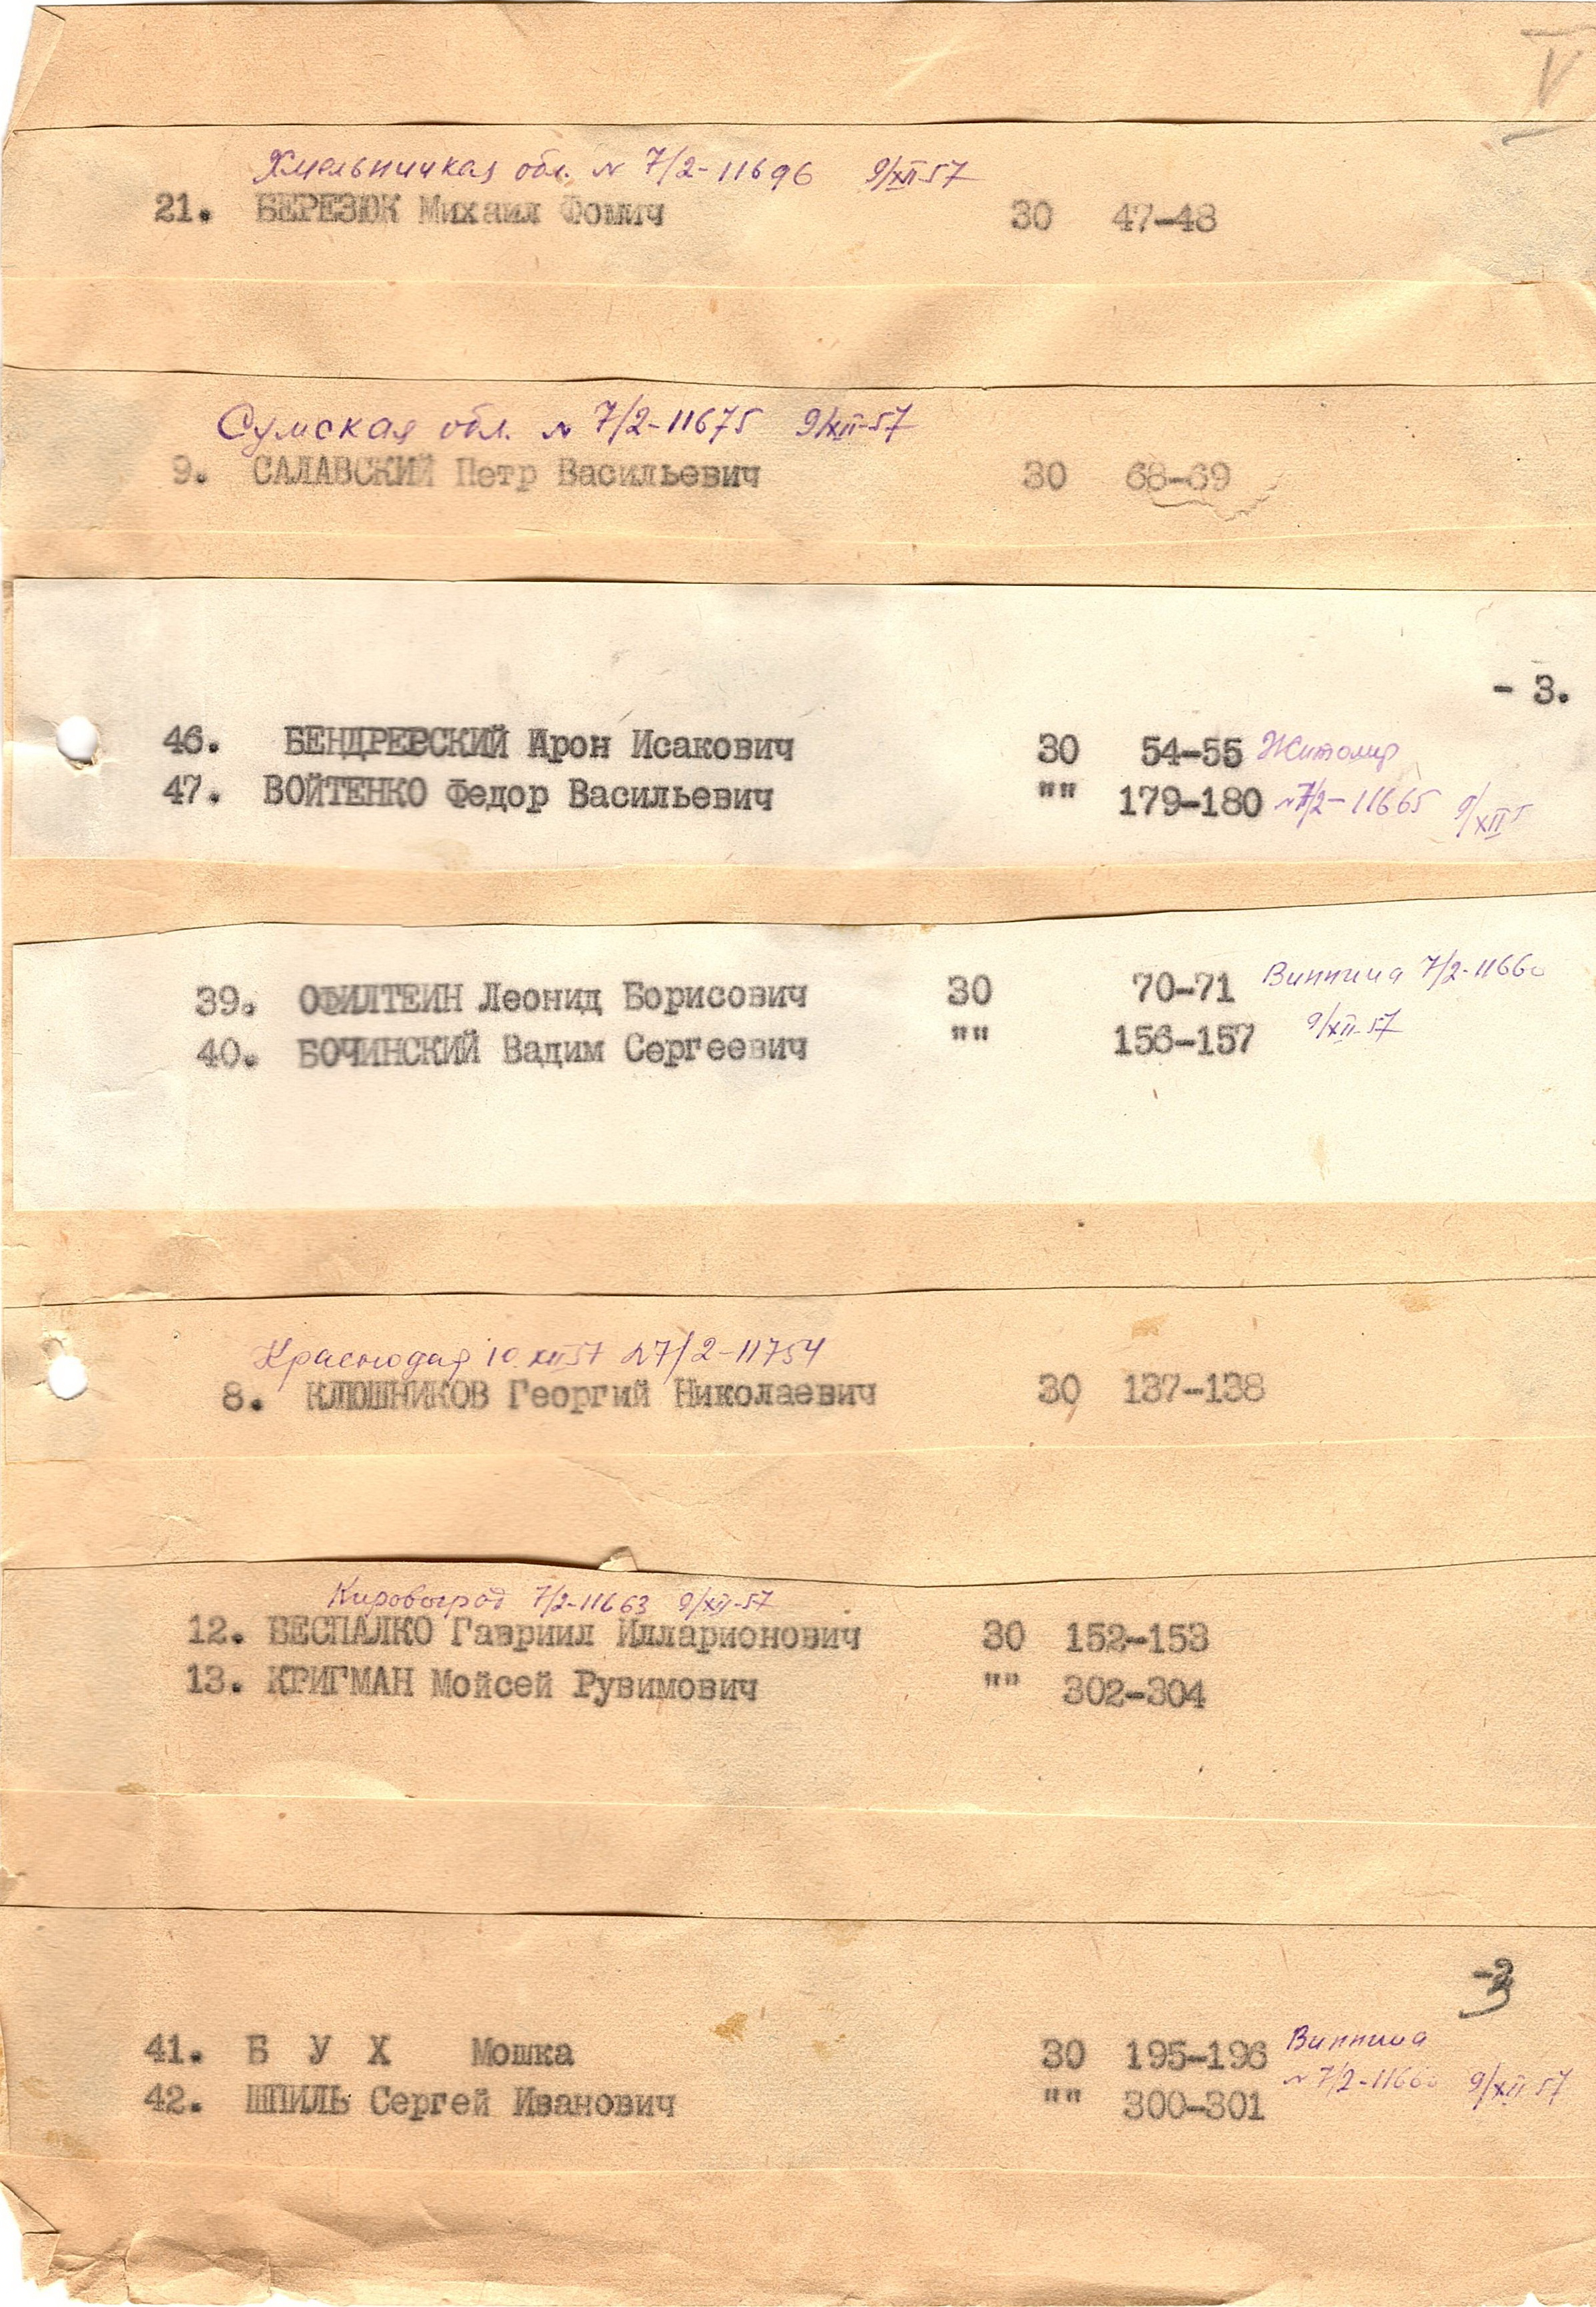 V
Хмельницкая обл. № 7/2-11696 9/XII-57
21. БЕРЕЗЮК Михаил Фомич 30 47-48
Сумская обл. № 7/2-11675 9/XII-57
9. САЛАВСКИЙ Петр Васильевич 30 68-69
- 3.
46. БЕНДРЕВСКИЙ Арон Исакович 30 54-55 Житомир
47. ВОЙТЕНКО Федор Васильевич "" 179-180 № 7/2-11665 9/XII
39. Леонид Борисович 30 70-71 Винница 7/2-11660
40. БОЧИНСКИЙ Вадим Сергеевич "" 156-157 9/XII-57
Краснодар 10.XII57 №7/2-11754
8. КЛЮШНИКОВ Георгий Николаевич 30 137-138
Кировоград 7/2-11663 9/XII-57
12. БЕСПАЛКО Гавриил Илларионович 30 152-153
13. КРИГМАН Мойсей Рувимович "" 302-304
-3
41. Б У Х Мошка 30 195-196 Винница
42. ШПИЛЬ Сергей Иванович "" 300-301 № 7/2-11660 9/XII 57